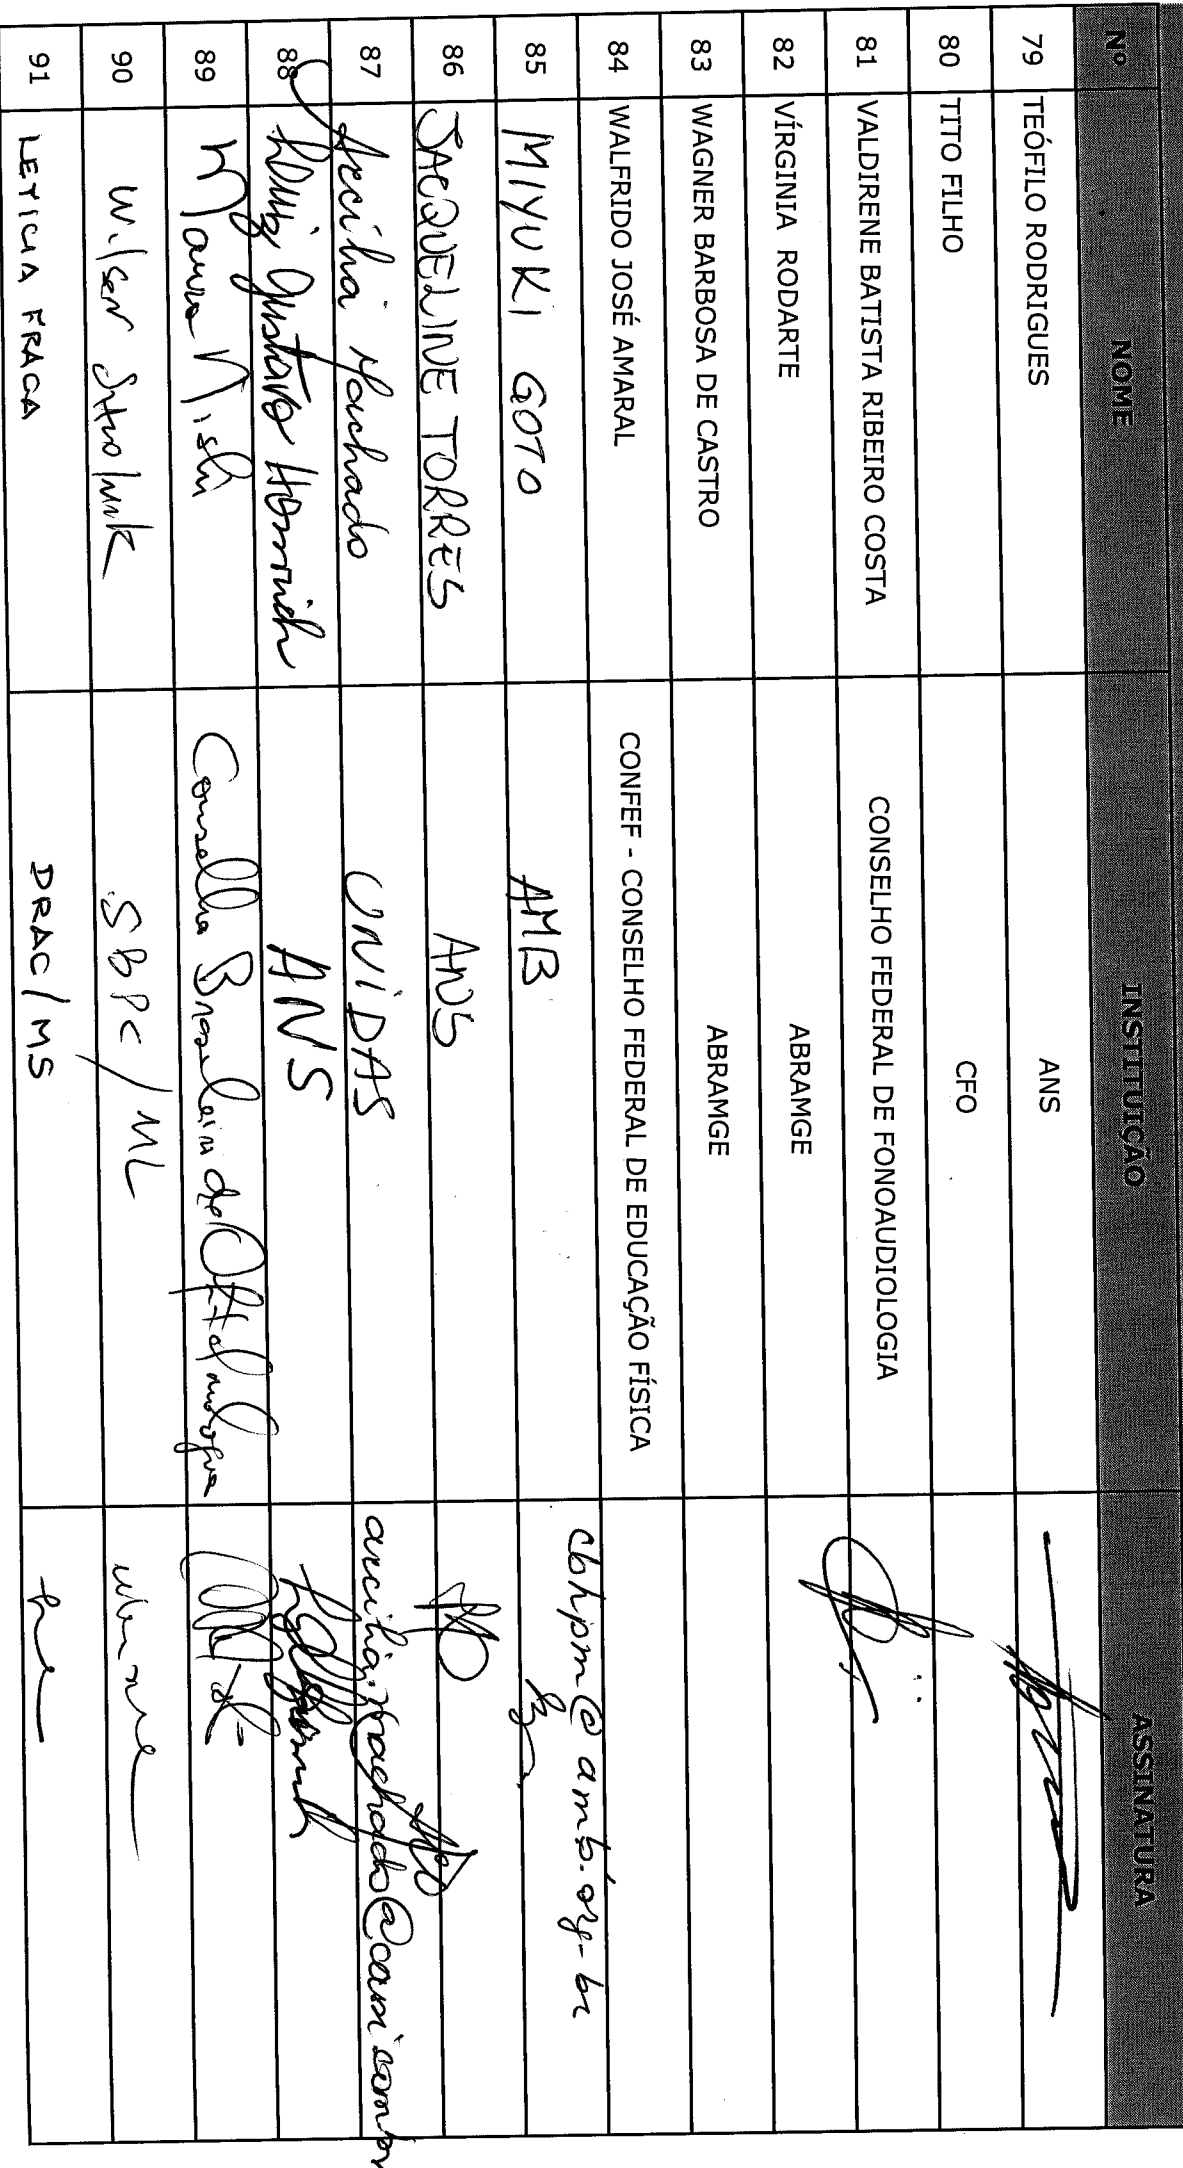 Nº NOME INSTITUIÇÃO ASSINATURA
79 TEÓFILO RODRIGUES ANS
80 TITO FILHO CFO
81 VALDIRENE BATISTA RIBEIRO COSTA CONSELHO FEDERAL DE FONOAUDIOLOGIA
82 VÍRGINIA RODARTE ABRAMGE
83 WAGNER BARBOSA DE CASTRO ABRAMGE
84 WALFRIDO JOSÉ AMARAL CONFEF - CONSELHO FEDERAL DE EDUCAÇÃO FÍSICA
85 MIYUKI GOTO AMB cbhpm@amb.org.br
86 JACQUELINE TORRES ANS
87 Machado UNIDAS
88 Luiz Gustavo ANS
89 Mauro Nishi Conselho Brasileiro de Oftalmologia
90 Wilson SBPC/ML
91 LETICIA FRAGA DRAC/MS